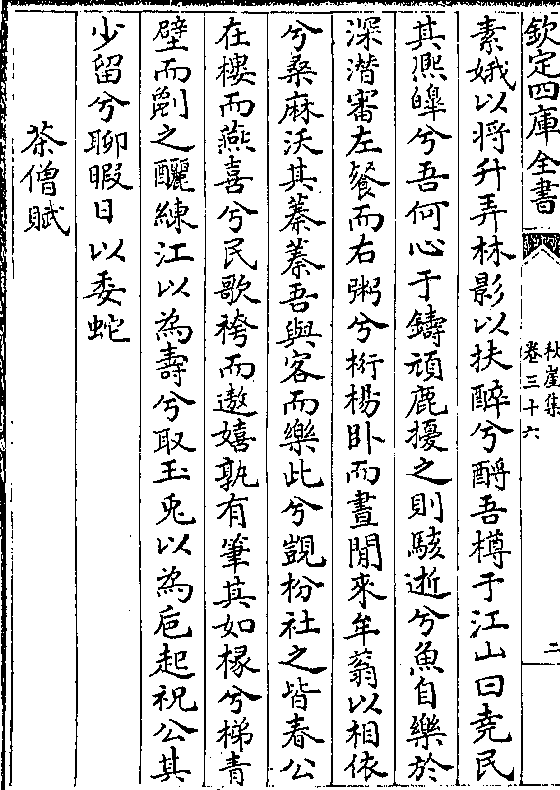 欽定四庫全書
秋崖集
卷三十六
二
素娥以將升弄林影以扶醉兮酹吾樽于江山曰堯民
其熈皥兮吾何心于鑄頑鹿擾之則駭逝兮魚自樂於
深潜審左餐而右粥兮桁楊卧而晝閒來牟蓊以相依
兮桑麻沃其蓁蓁吾與客而樂此兮覬枌社之皆春公
在樓而燕喜兮民歌袴而遨嬉孰有筆其如椽兮梯青
壁而劚之釃練江以為壽兮取玉兎以為巵起祝公其
少留兮聊暇日以委蛇
茶僧賦